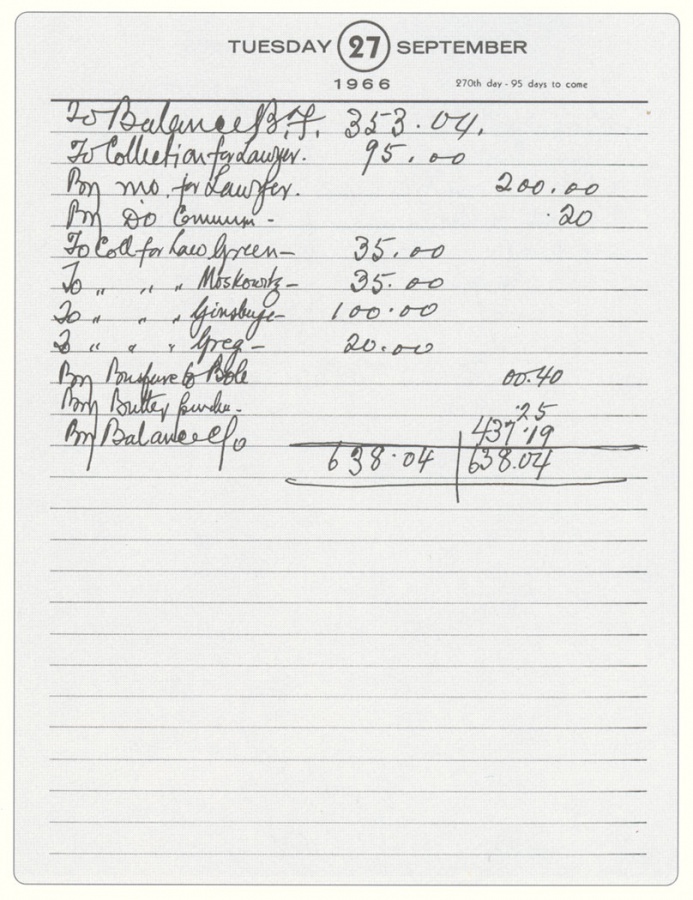 TUESDAY 27 SEPTEMBER
1966 270th day - 95 days to come
To Balance B.F. 353.04.
To Collection for Lawyer. 95.00
By mo. for Lawyer. 200.00
By Do Comum - .20
To Coll for Law Green - 35.00
To " " " Moskowitz - 35.00
To " " " Ginsburge - 100.00
To " " " Greg - 20.00
By Busfare to 00.40
By Butter .25
By Balance C/o 437.19
638.04 638.04